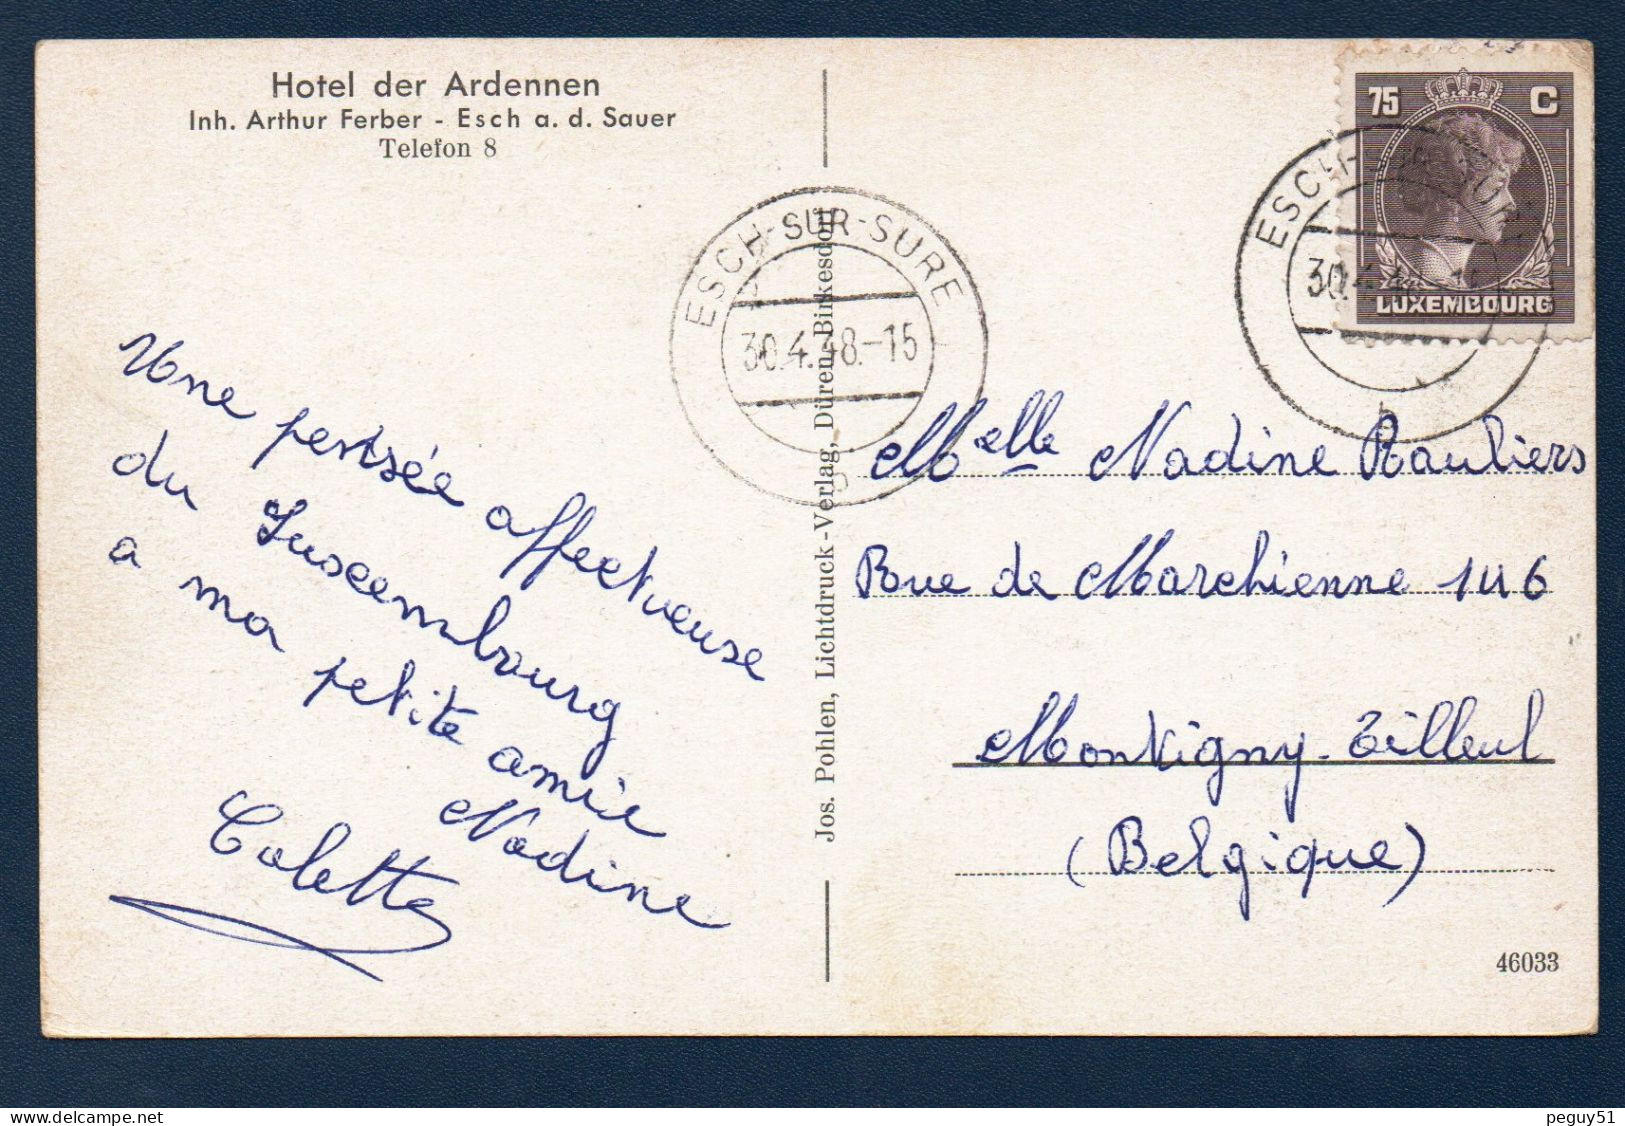 Hotel der Ardennen
Inh. Arthur Ferber - Esch a. d. Sauer
Telefon 8
75 C
LUXEMBOURG
ESCH-SUR-SURE
30.4.48.-15
b
ESCH-SUR-
30.4.
Une pensée affectueuse
du Luxembourg
a ma petite amie
Nadine
Colette
Jos. Pohlen, Lichtdruck-Verlag, Düren-Birkesdorf
Melle Nadine Rauliers
Rue de Marchienne 146
Montigny-Tilleul
(Belgique)
46033
peguy51